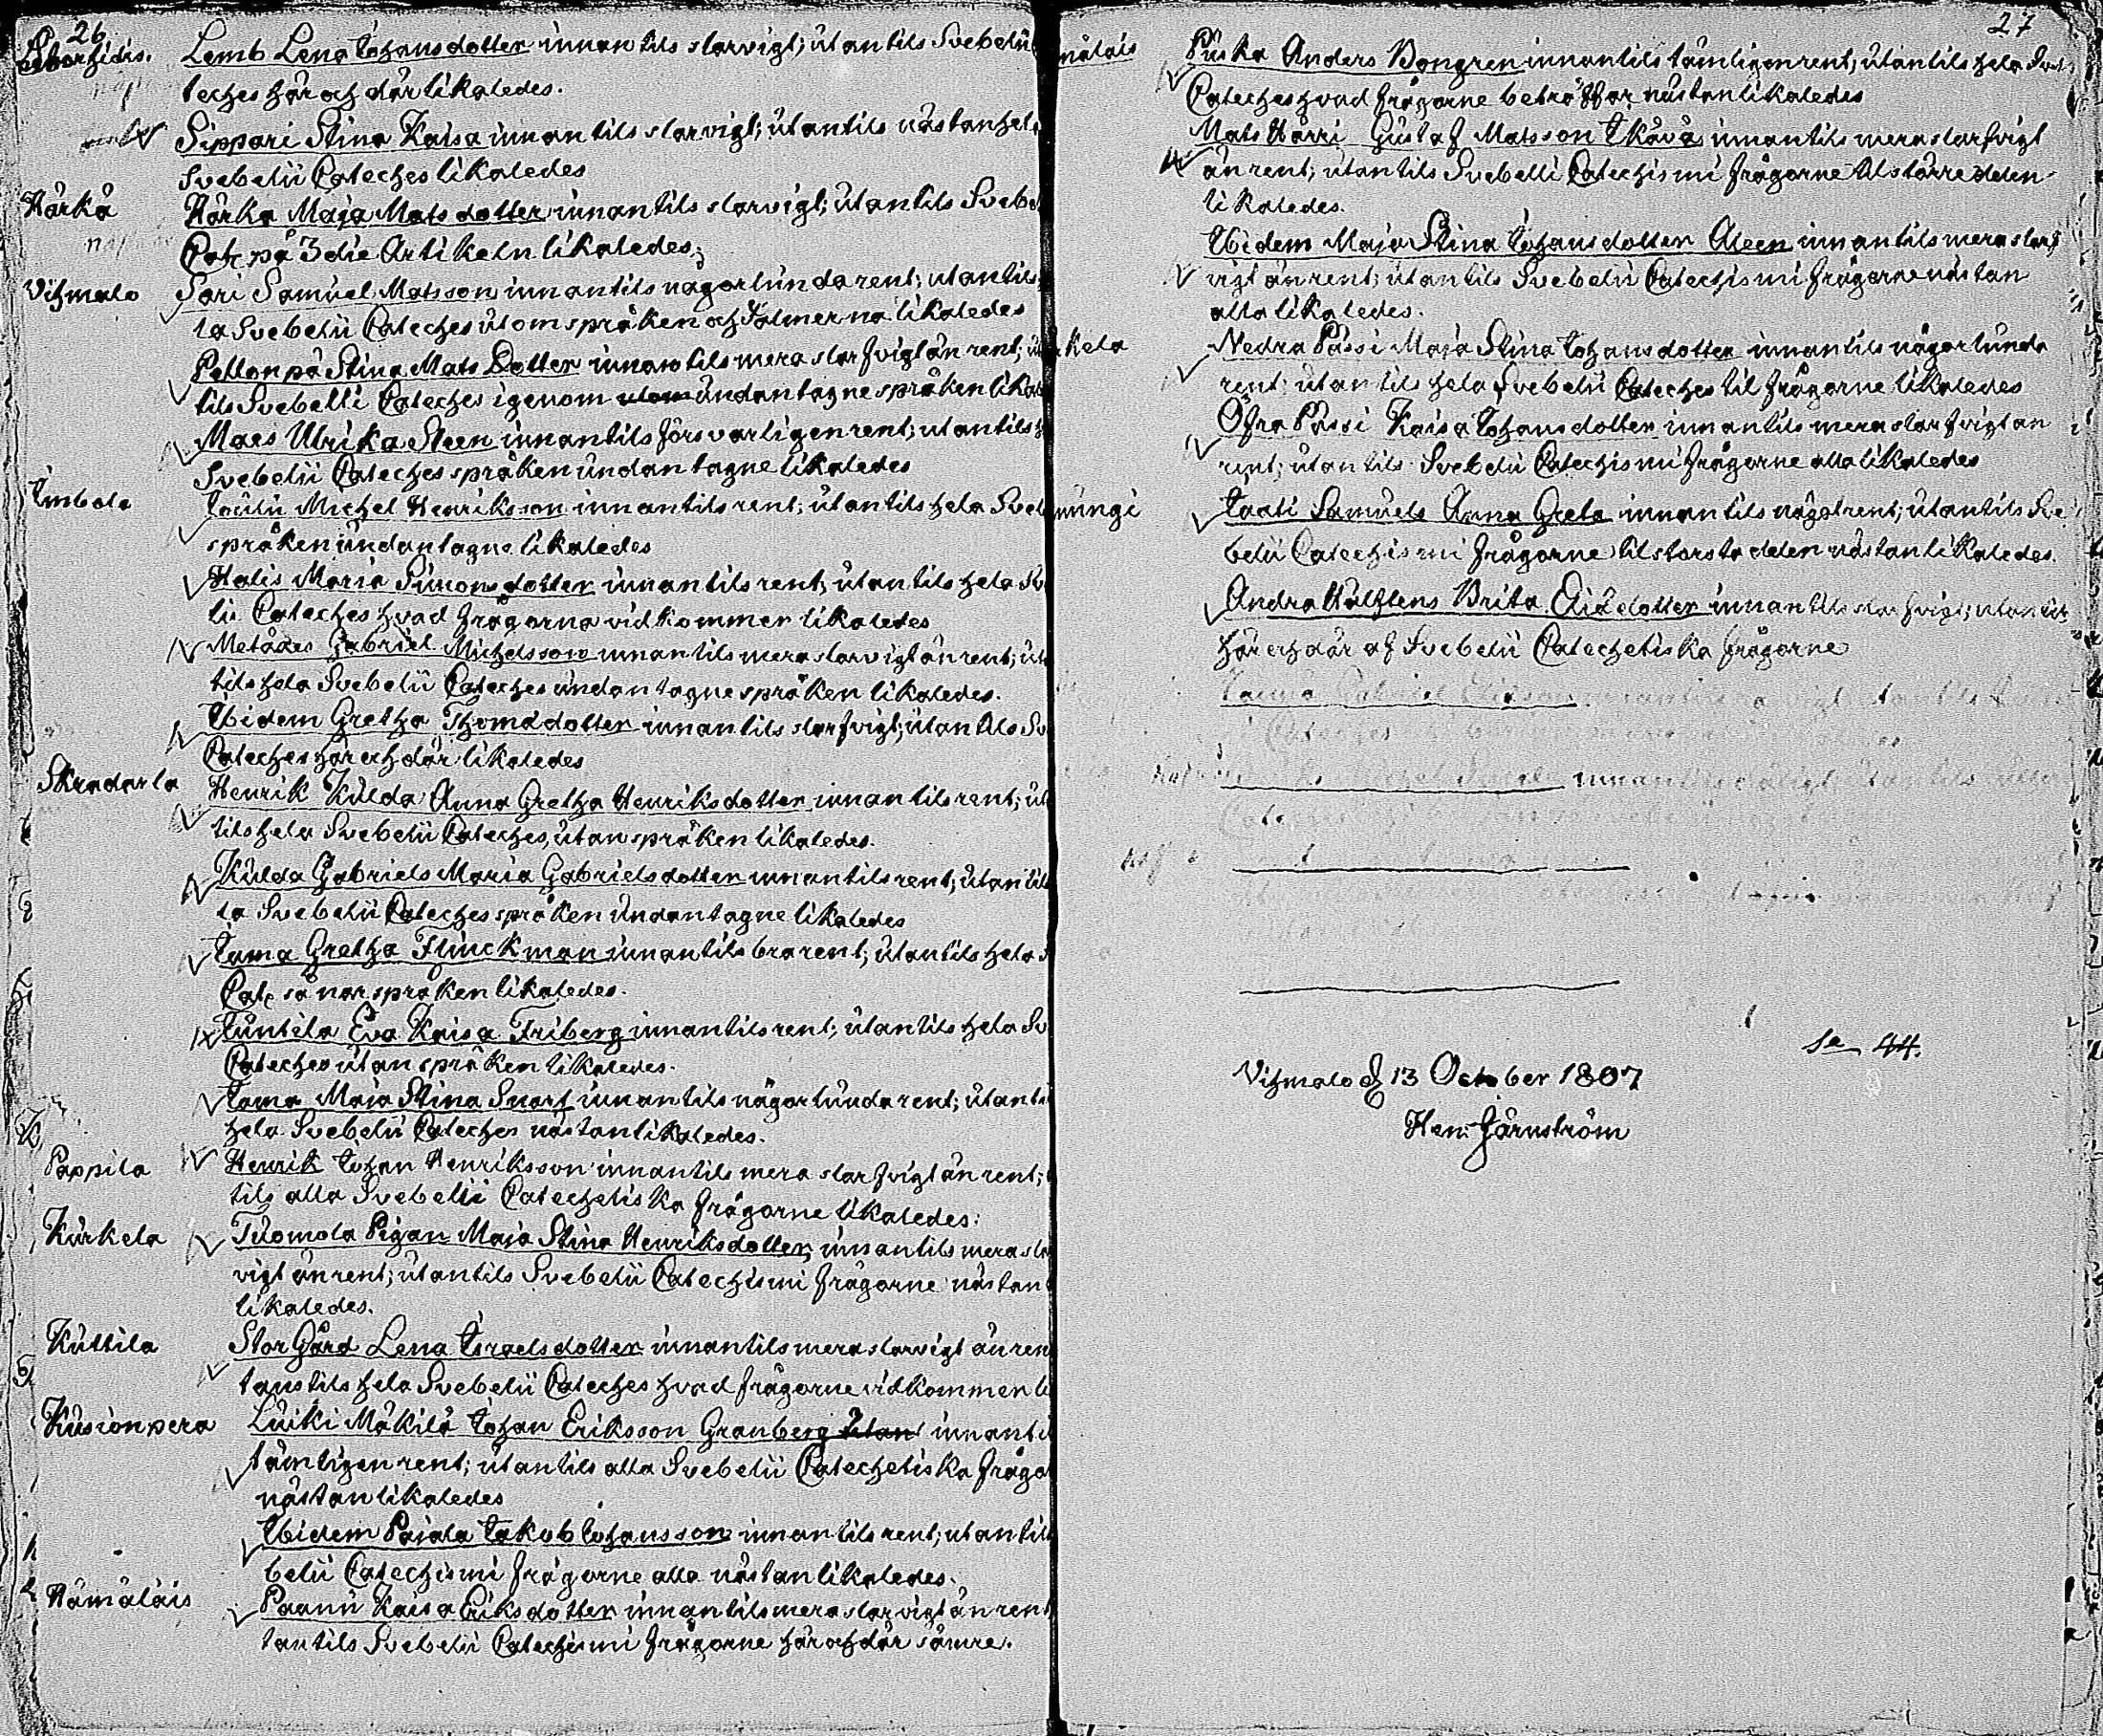 26
Lemb Lena Johansdotter innantils slarvigt; utantils Svebelii
teches här och där likaledes.
Sippari Stina Kaisa innantils slarvigt; utantils nästan hela
Svebelii Cateches likaledes
Härkä Härka Maja Matsdotter innantils slarvigt; utantils Svebe
Cate på 3die Artikeln likaledes;
Vihmalo Sari Samuel Matsson innantils någorlunda rent; utantils
la Svebelii Cateches utom språken och Psalmerna likaledes
Peltonpä Stina Mats Dotter innantils mera slarfvigt än rent; ut
tils Svebelii Cateches igenom undantagne språken likale
Maes Ulrika Steen innantils försvarligen rent; utantils h
Svebelii Cateches språken undantagne likaledes
Imbola Joulu Michel Henriksson innantils rent; utantils hela Sveb
språken undantagne likaledes
Halis Maria Simonsdotter innantils rent; utantils hela Sve
lii Cateches hvad frågorna vidkommer likaledes
Metåkes Gabriel Michelsson innantils mera slarvigt än rent; ut
tils hela Svebelii Cateches undantagne språken likaledes.
Ibidem Gretha Thomadotter innantils slarfvigt; utantils Sv
Cateches här och där likaledes
Skradarla Henrik Kulda Anna Gretha Henriksdotter innantils rent; ut
tils hela Svebelii Cateches, utan språken likaledes.
Kulda Gabriels Maria Gabrielsdotter innantils rent; utantils
la Svebelii Cateches språken undantagne likaledes
Juma Gretha Flinckman innantils bra rent; utantils hela S
Cate så när språken likaledes.
Juntila Eva Kaisa Friberg innantils rent; utantils hela Sv
Cateches utan språken likaledes.
Juma Maja Stina Snarf innantils någorlunda rent; utanti
hela Svebelii Cateches nästan likaledes.
Pappila Henrik Johan Henriksson innantils mera slarfvigt än rent;
tils alla Svebelii Catechetiska frågorne likaledes:
Kurkela Tuomola Pigan Maja Stina Henriksdotter, innantils mera sla
vigt än rent; utantils Svebelii Catechismi frågorne nästan
likaledes.
Kuttila StorGård Lena Israelsdotter innantils mera slarvigt än ren
tantils hela Svebelii Cateches hvad frågorne vidkommer li
Kusionpera Luiki Mäkilä Johan Eriksson Granberg utan innanti
tämligen rent; utantils alla Svebelii Catechetiska frågo
nästan likaledes
Ibidem Paiala Jakob Johansson innantils rent; utantils
belii Catechismi frågorne alla nästan likaledes.
Hämäläis Paanu Kaisa Eriksdotter innantils mera slarvigt än rent
tantils Svebelii Catechismi frågorne här och där sämre.
27
mäläis Puska Anders Bongren innantils tämligen rent; utantils hela Sve
Cateches hvad frågorne beträffar nästan likaledes
Mats Harri Gustaf Matsson innantils mera slarfvigt
än rent; utantils Svebelii Catechismi frågorne til större delen
likaledes.
Ibidem Maja Stina Johansdotter Aleen innantils mera slarf
vigt än rent; utantils Svebelii Catechismi frågorne nästan
alla likaledes.
rkela Nedra Passi Maja Stina Johansdotter innantils någorlunda
rent; utantils hela Svebelii Cateches til frågorne likaledes
Öfra Passi Kaisa Johansdotter innantils mera slarfvigt än
rent; utantils Svebelii Catechismi frågorne alla likaledes
nungi Jaati Samuels Anna Greta innantils något rent; utantils Sve
belii Catechismi frågorne til största delen nästan likaledes.
Andra Brita innantils slarfvigt; utantils
här och där af Svebelii Catechetiska frågorne
innantils
Sa 44.
Vihmalo d 13 October 1807
Hen: Järnström